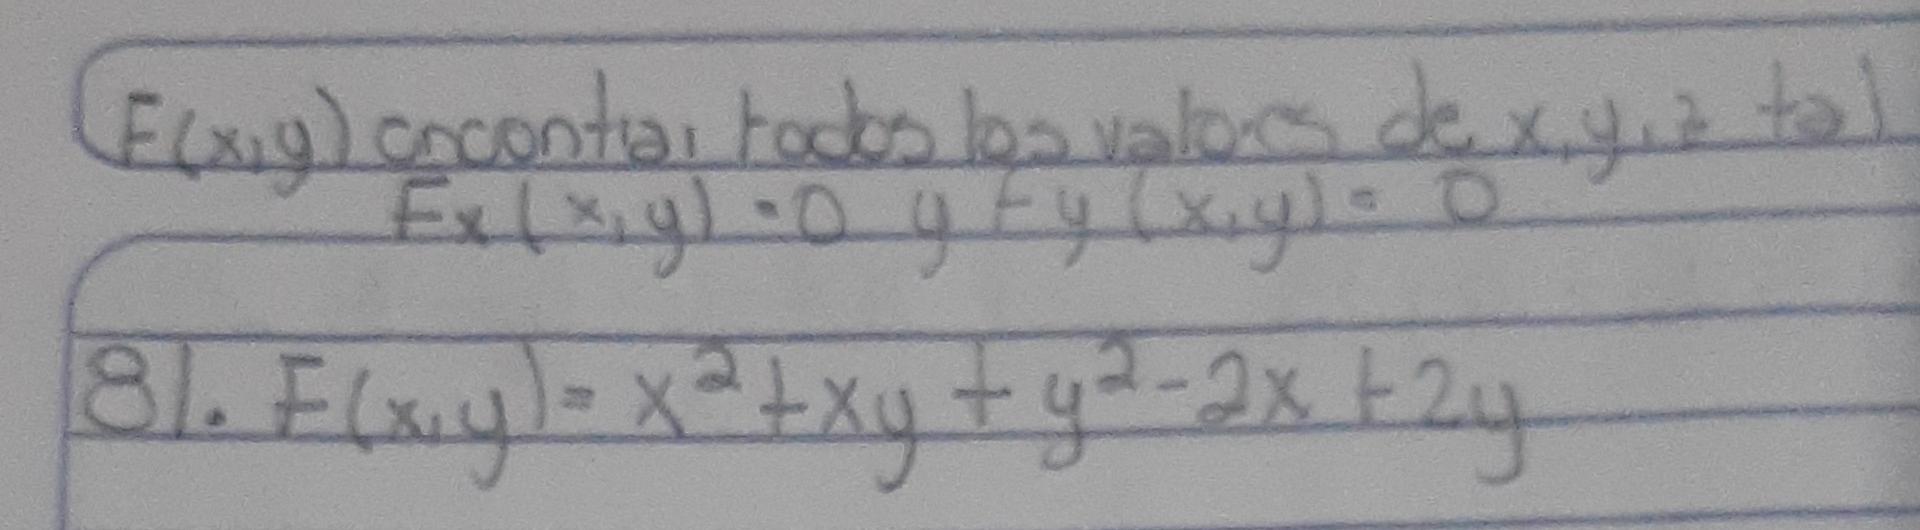 F(x,y) encontrar todos los valores de x, y, z tal
Fx(x,y)=0 y Fy(x,y)=0
81. F(x,y)= x²+xy+y²-2x+2y